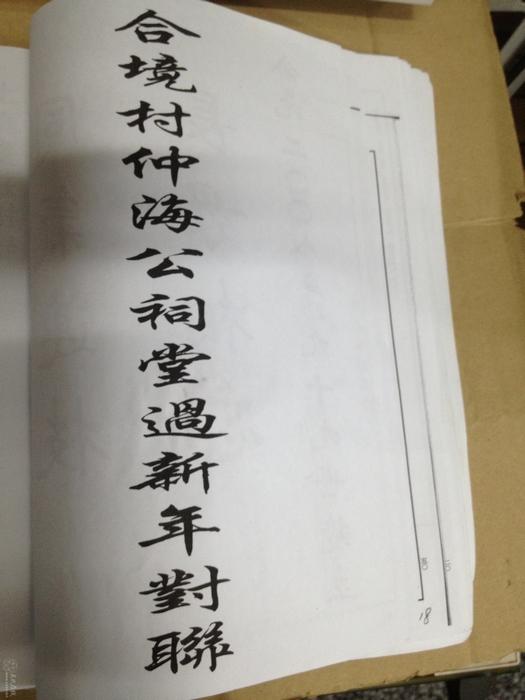 合境村仲海公祠堂過新年對聯
18